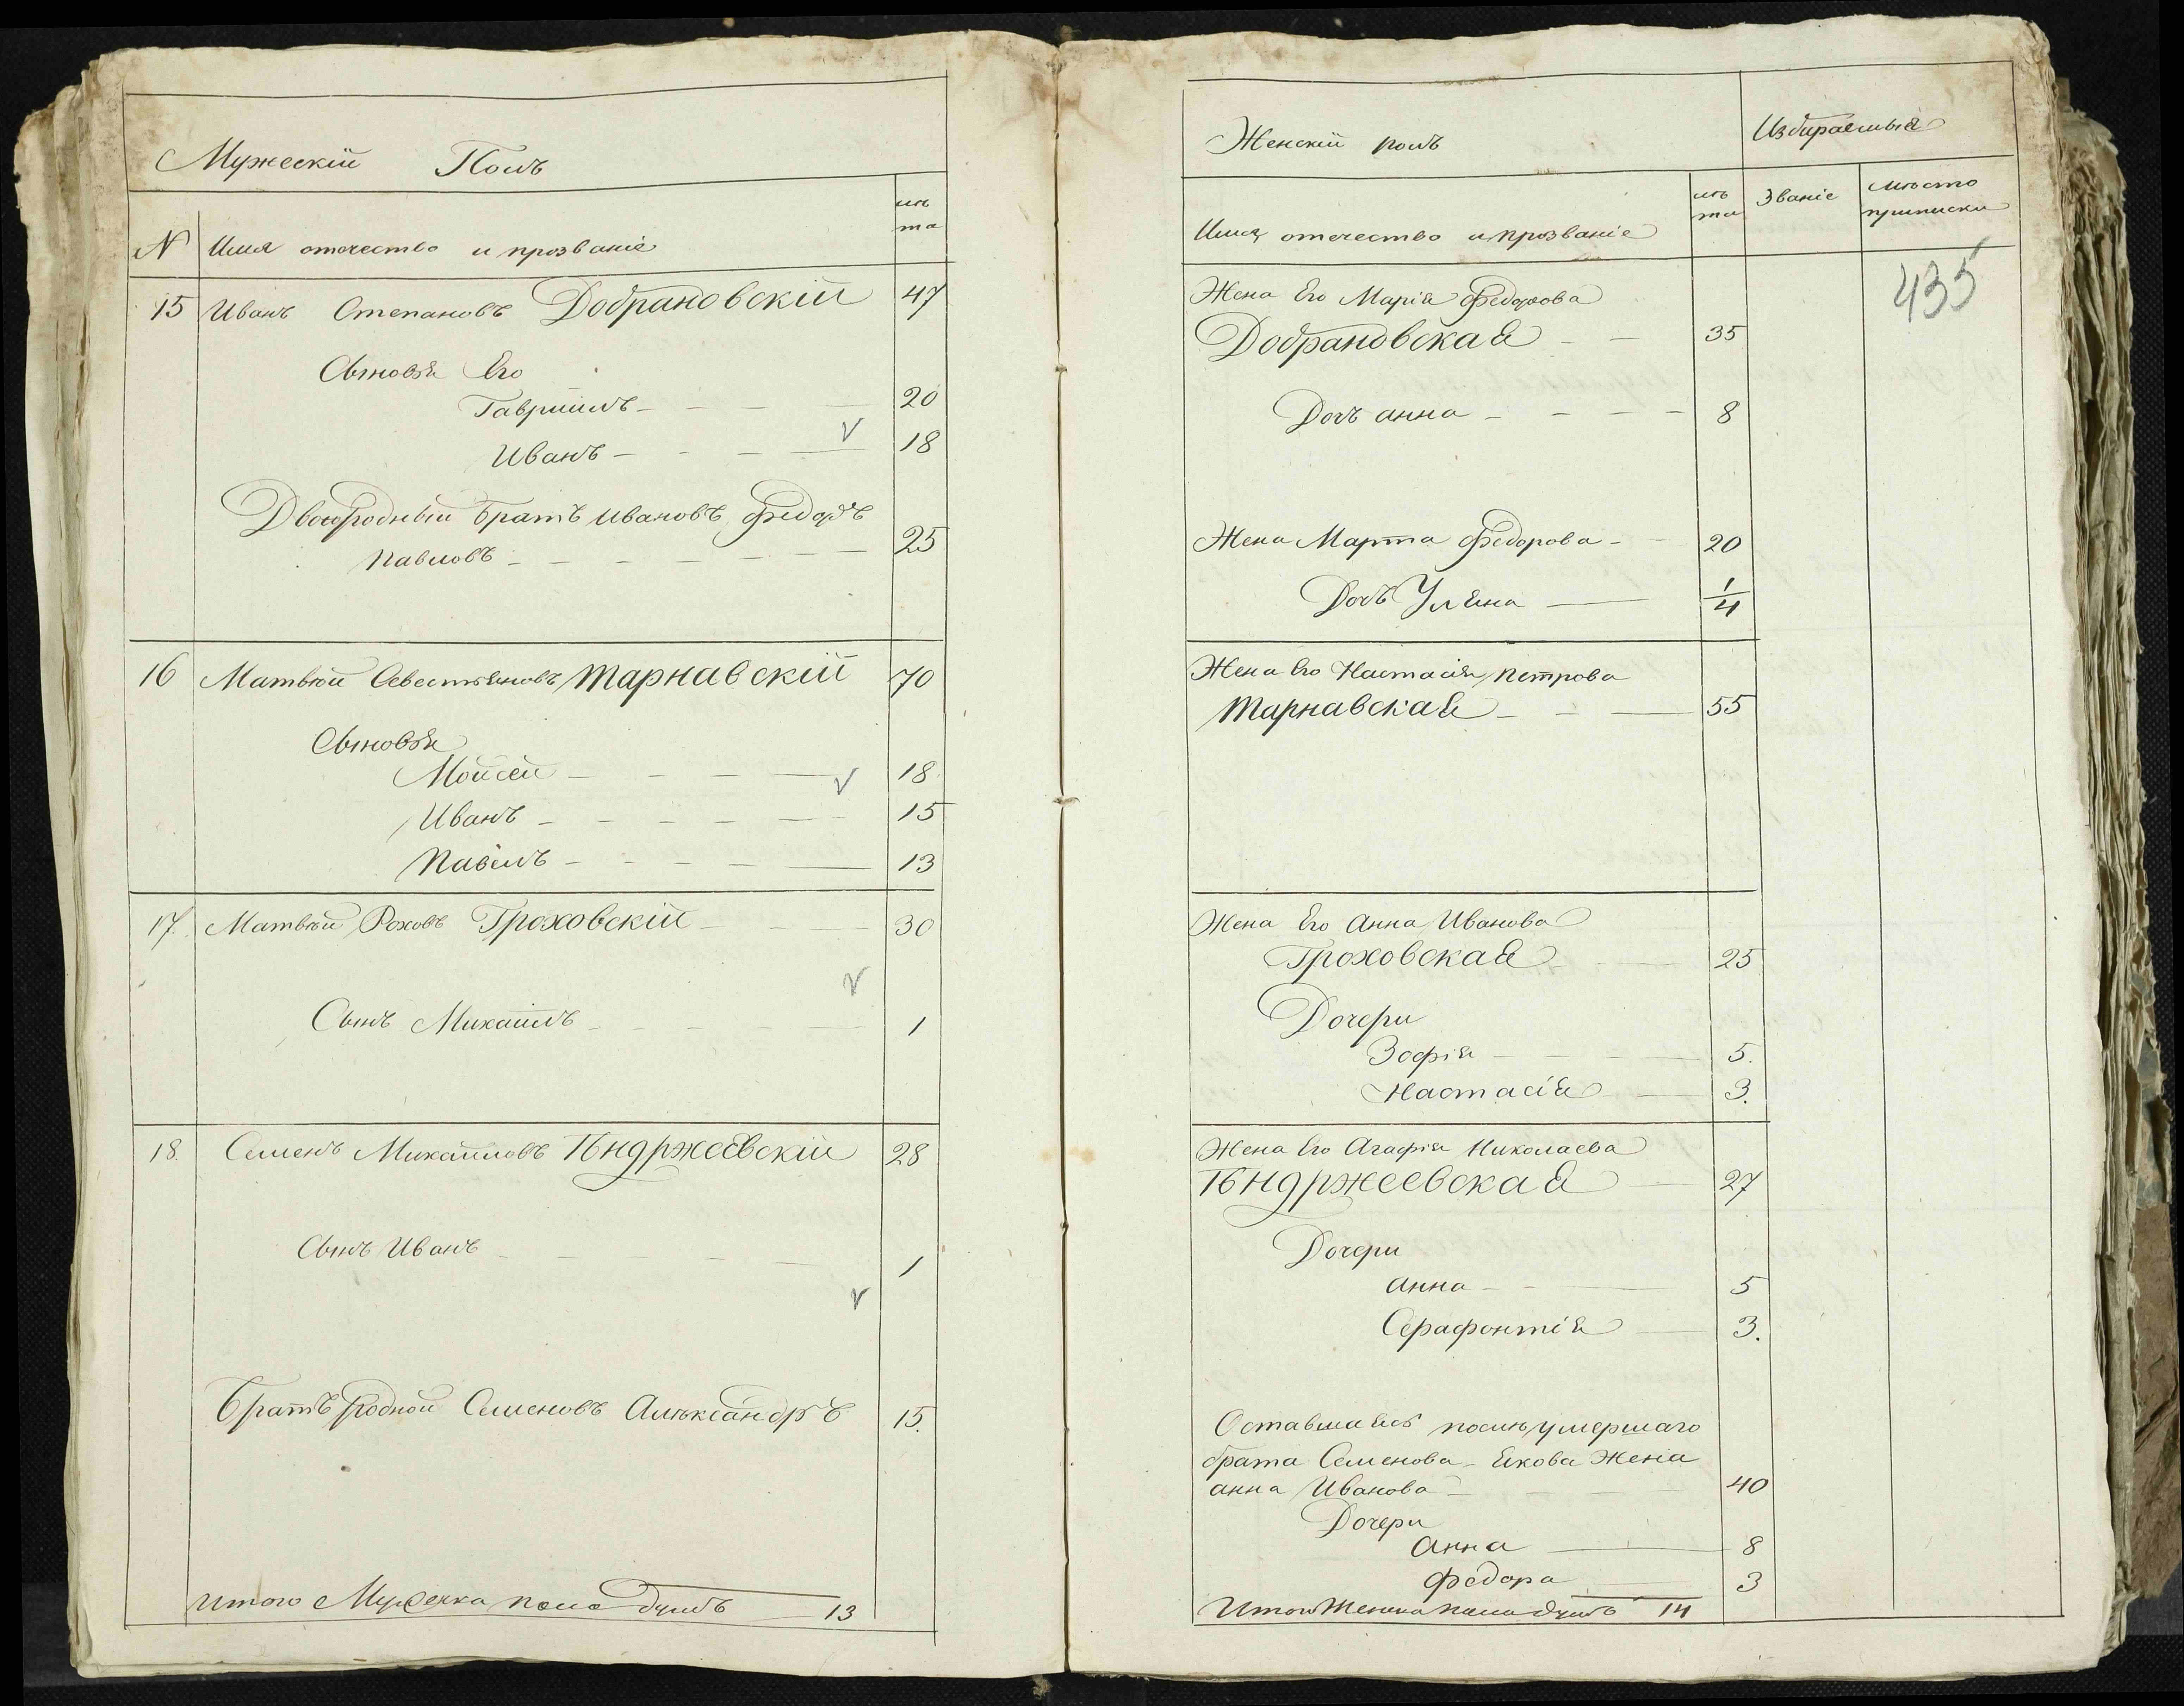 Мужескій Полъ
лѣ
та
N Имя отечество и прозваніе
15 Иванъ Степановъ Добрановскій 47
Сыновья Его
Гавріилъ 20
Иванъ 18
Двоюродный братъ Ивановъ Федоръ
Павловъ 25
16 Матвѣй Севестьяновъ Тарнавскій 70
Сыновья
Мойсей 18
Иванъ 15
Павелъ 13
17. Матвѣй Роховъ Гроховскій 30
Сынъ Михаилъ 1
18. Семенъ Михайловъ Ѣндржеевскій 28
Сынъ Иванъ 1
Братъ родной Семеновъ Алѣксандръ 15.
Итого Мужеска пола душъ 13
Женскій полъ
Избираемыя
Имя, отечество и прозваніе
лѣ
та
Званіе
мѣсто
приписки
435
Жена Его Марія Федорова
Добрановская 35
Дочъ анна 8
Жена Марта Федорова 20
Дочъ Уляна 1/4
Жена Его Настасія Петрова
Тарнавская 55
Жена Его Анна Иванова
Гроховская 25
Дочери
Зофія 5.
Настасія 3.
Жена Его Агафія Николаева
Ѣндржеевская 27
Дочери
анна 5
Серафонтія 3.
Оставшаясь послѣ умершаго
брата Семенова Якова Жена
анна Иванова 40
Дочери
Анна 8
Федора 3
Итого Женска пола душъ 14